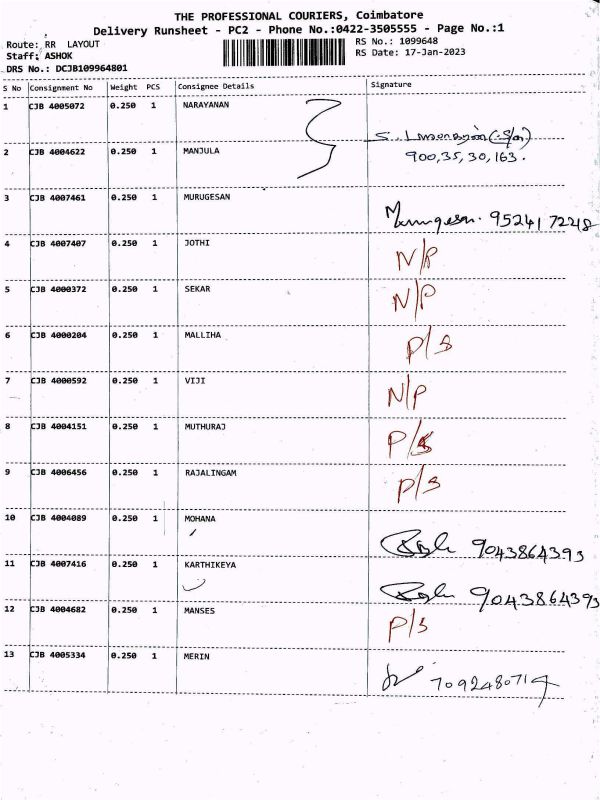 THE PROFESSIONAL COURIERS, Coimbatore
Delivery Runsheet - PC2 - Phone No.:0422-3505555 - Page No.:1
Route: RR LAYOUT
RS No.: 1099648
Staff: ASHOK
RS Date: 17-Jan-2023
DRS No.: DCJB109964801
S No Consignment No Weight PCS Consignee Details Signature
1 CJB 4005072 0.250 1 NARAYANAN
2 CJB 4004622 0.250 1 MANJULA 900,35,30,163.
3 CJB 4007461 0.250 1 MURUGESAN Murugesan. 9524172248
4 CJB 4007407 0.250 1 JOTHI N/P
5 CJB 4000372 0.250 1 SEKAR N/P
6 CJB 4000204 0.250 1 MALLIHA P/S
7 CJB 4000592 0.250 1 VIJI N/P
8 CJB 4004151 0.250 1 MUTHURAJ P/S
9 CJB 4006456 0.250 1 RAJALINGAM P/S
10 CJB 4004089 0.250 1 MOHANA 9043864393
11 CJB 4007416 0.250 1 KARTHIKEYA 9043864393
12 CJB 4004682 0.250 1 MANSES P/S
13 CJB 4005334 0.250 1 MERIN 7092480714